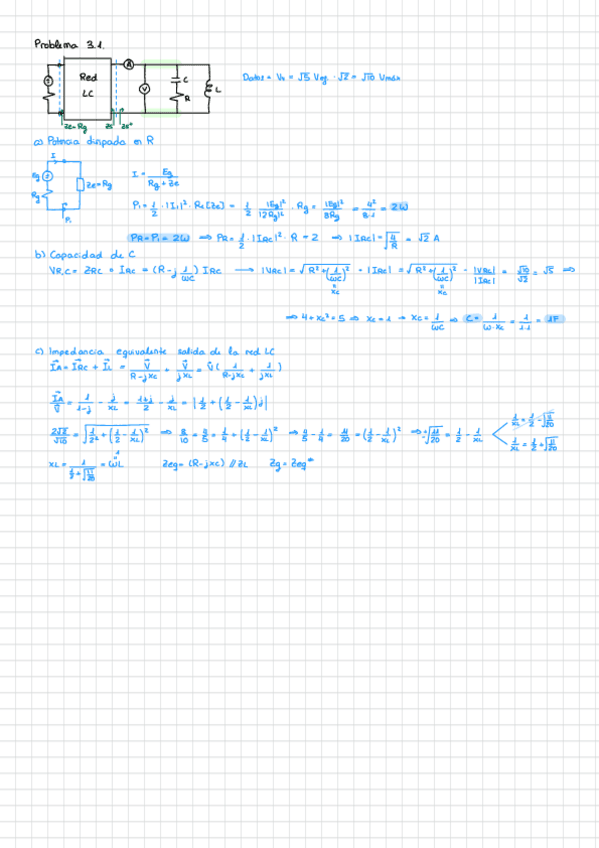 Problema 3.1.
Red
LC
A
V
C
R
L
Ze=Rg Zs Zs*
Datos = Vs = √5 Veg · √2 = √10 Vmax
a) Potencia disipada en R
I
Eg
Rg
Ze=Rg
P₁
I = Eg / (Rg + Ze)
P₁ = 1/2 · |I₁|² · Re[Ze] = 1/2 |Eg|²/|2Rg|² · Rg = |Eg|²/8Rg = 4²/8·1 = 2W
PR = P₁ = 2W ⇒ PR = 1/2 · |IRC|² · R = 2 ⇒ |IRC| = √(4/R) = √2 A
b) Capacidad de C
VR,C = ZRC · IRC = (R - j 1/ωC) IRC → |VRC| = √(R² + (1/ωC)²) · |IRC| = √(R² + (1/ωC)²) = |VRC|/|IRC| = √10/√2 = √5 ⇒
xc xc
⇒ 4 + xc² = 5 ⇒ xc = 1 → xc = 1/ωC ⇒ C = 1/(ω·xc) = 1/1·1 = 1F
c) Impedancia equivalente salida de la red LC
IA = IRC + IL = V/(R-jxc) + V/jxL = V (1/(R-jxc) + 1/jxL)
IA/V = 1/(1-j) - j/xL = (1+j)/2 - j/xL = |1/2 + (1/2 - 1/xL)j|
2√2/√10 = √(1/2² + (1/2 - 1/xL)²) ⇒ 8/10 = 4/5 = 1/4 + (1/2 - 1/xL)² ⇒ 4/5 - 1/4 = 11/20 = (1/2 - 1/xL)² ⇒ ±√(11/20) = 1/2 - 1/xL
1/xL = 1/2 - √(11/20)
1/xL = 1/2 + √(11/20)
xL = 1/(1/2 + √(11/20)) = ωL Zeq = (R-jxc) // ZL Zg = Zeq*